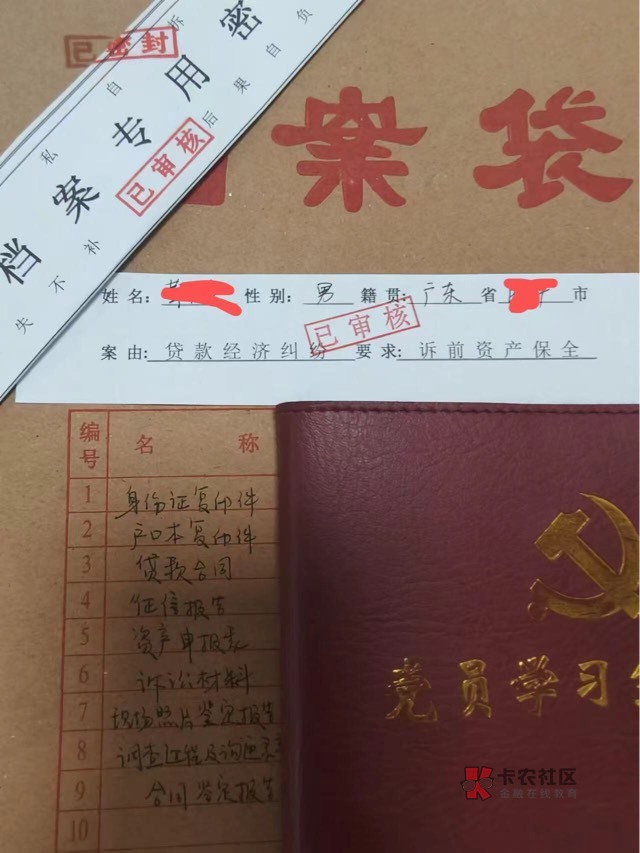 已密封
档案专用密
私自拆
失不补
后果自负
已审核
案袋
姓名: 性别: 男 籍贯: 广东 省 市
已审核
案由: 贷款经济纠纷 要求: 诉前资产保全
编号 名称
1 身份证复印件
2 户口本复印件
3 贷款合同
4 征信报告
5 资产申报表
6 诉讼材料
7 现场照片鉴定报告
8 调查过程及询问
9 合同鉴定报告
10
党员学习
卡农社区
金融在线教育